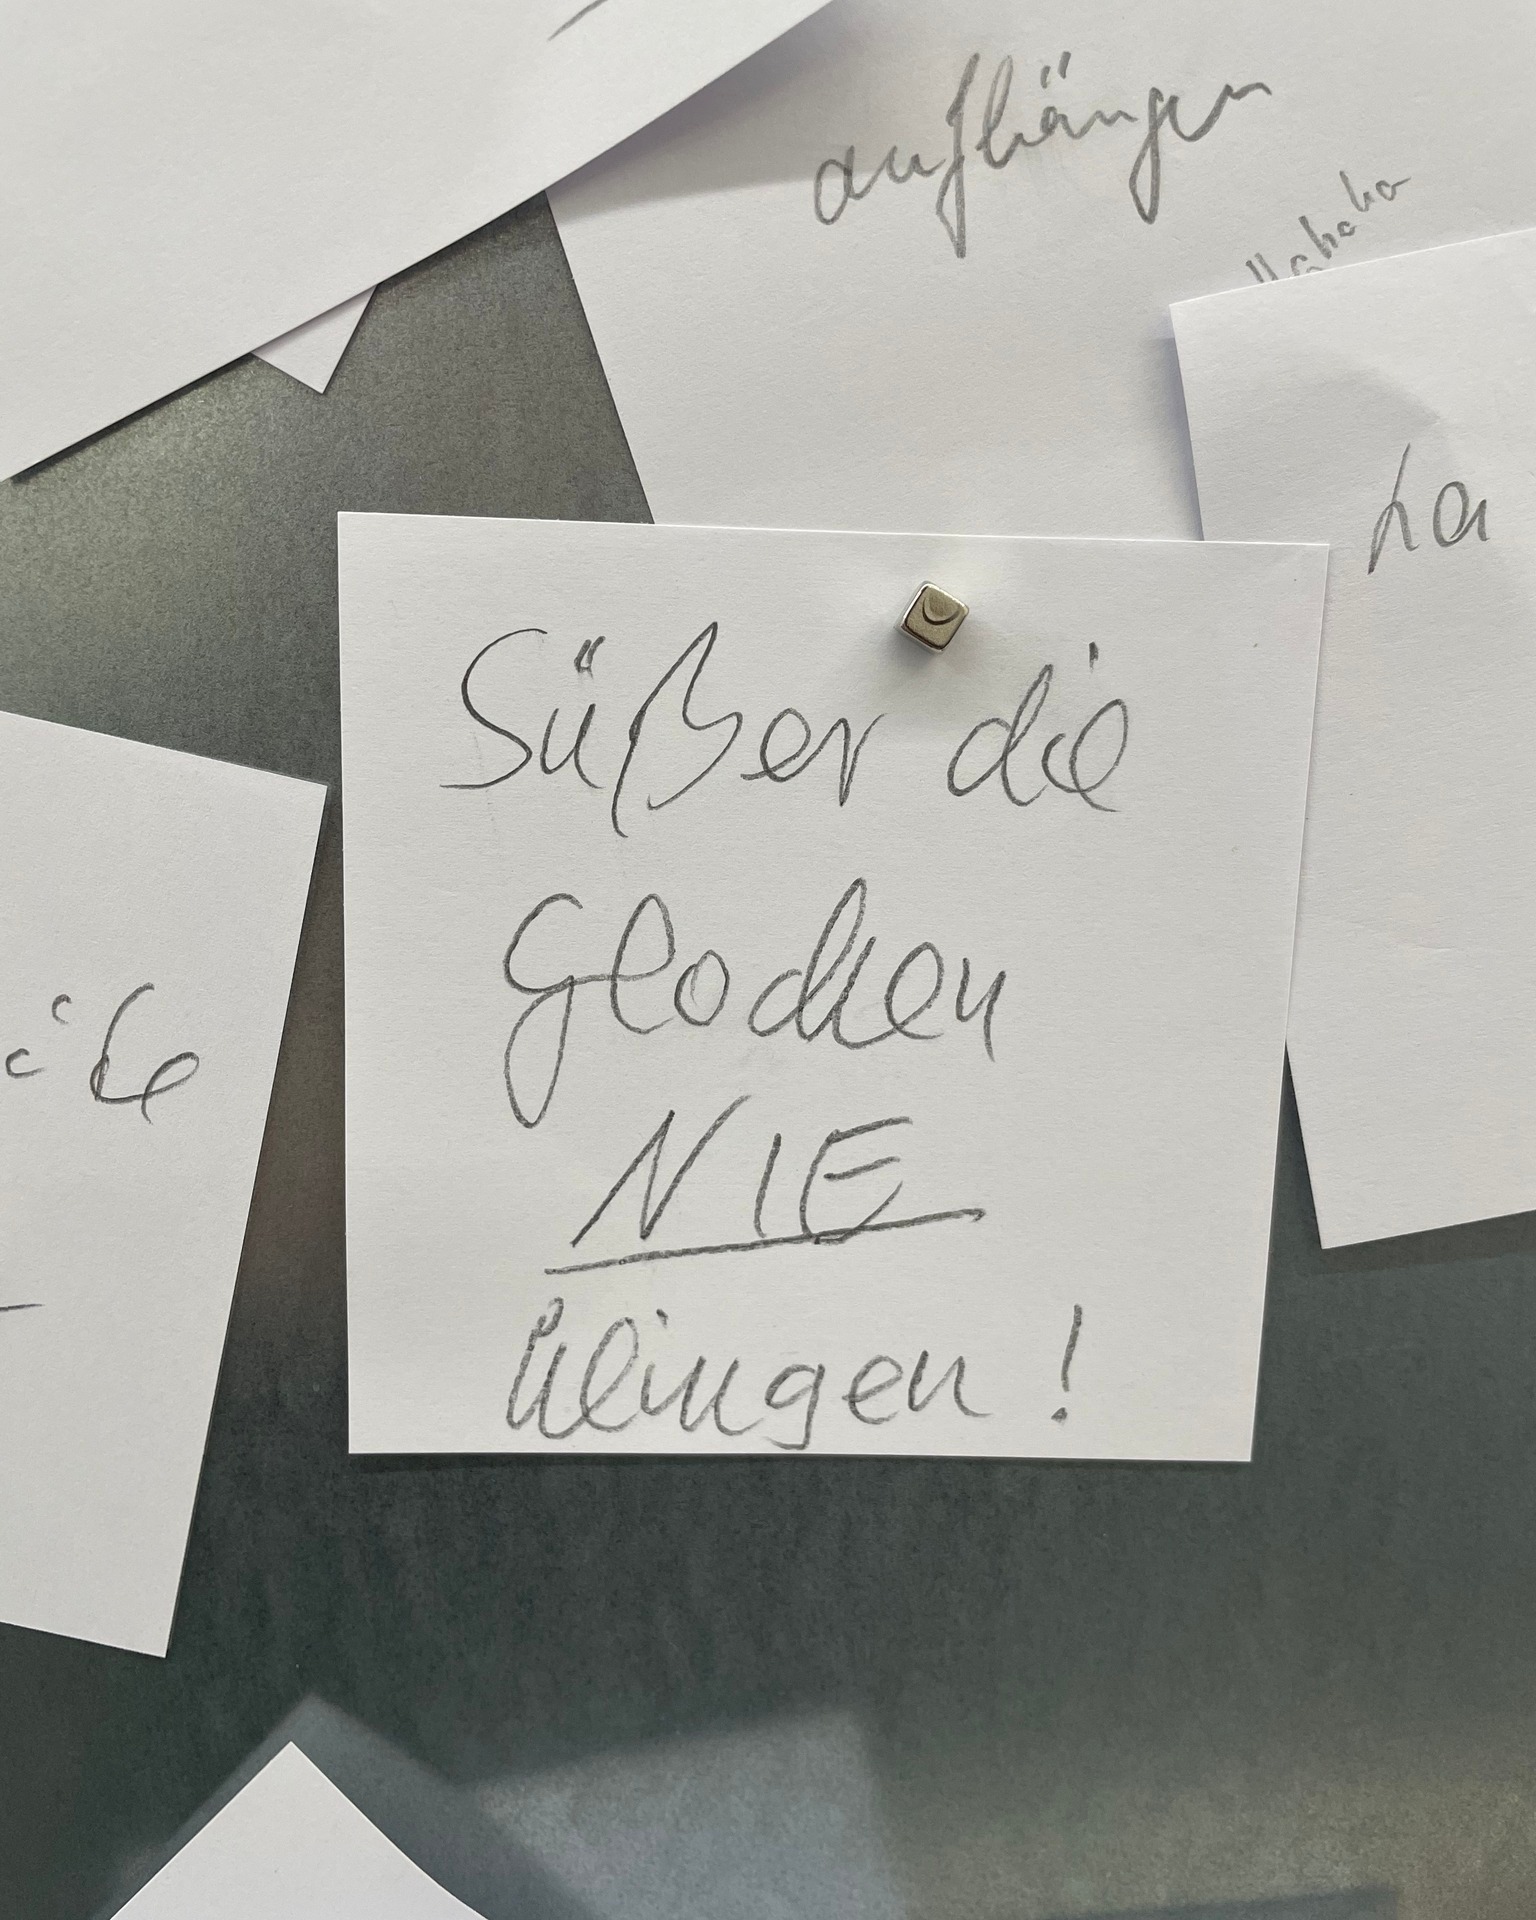 aufhängen
Hahaha
Süßer die
Glocken
NIE
klingen!